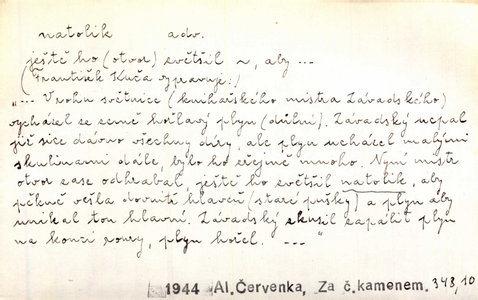 natolik adv.
ještě ho (otvor) zvětšil ~, aby ...
(František Kuča vypravuje:)
"... V rohu světnice (knihařského mistra Závadského)
vycházel ze země hořlavý plyn (důlní). Závadský ucpal
již sice dávno všechny díry, ale plyn ucházel malými
skulinami dále, bylo ho zřejmě mnoho. Nyní mistr
otvor zase odhrabal, ještě ho zvětšil natolik, aby
pěkně vešla dovnitř hlaveň (staré pušky) a plyn aby
unikal tou hlavní. Závadský zkusil zapálit plyn
na konci roury, plyn hořel. ..."
1944 Al. Červenka, Za č. kamenem. 348,10